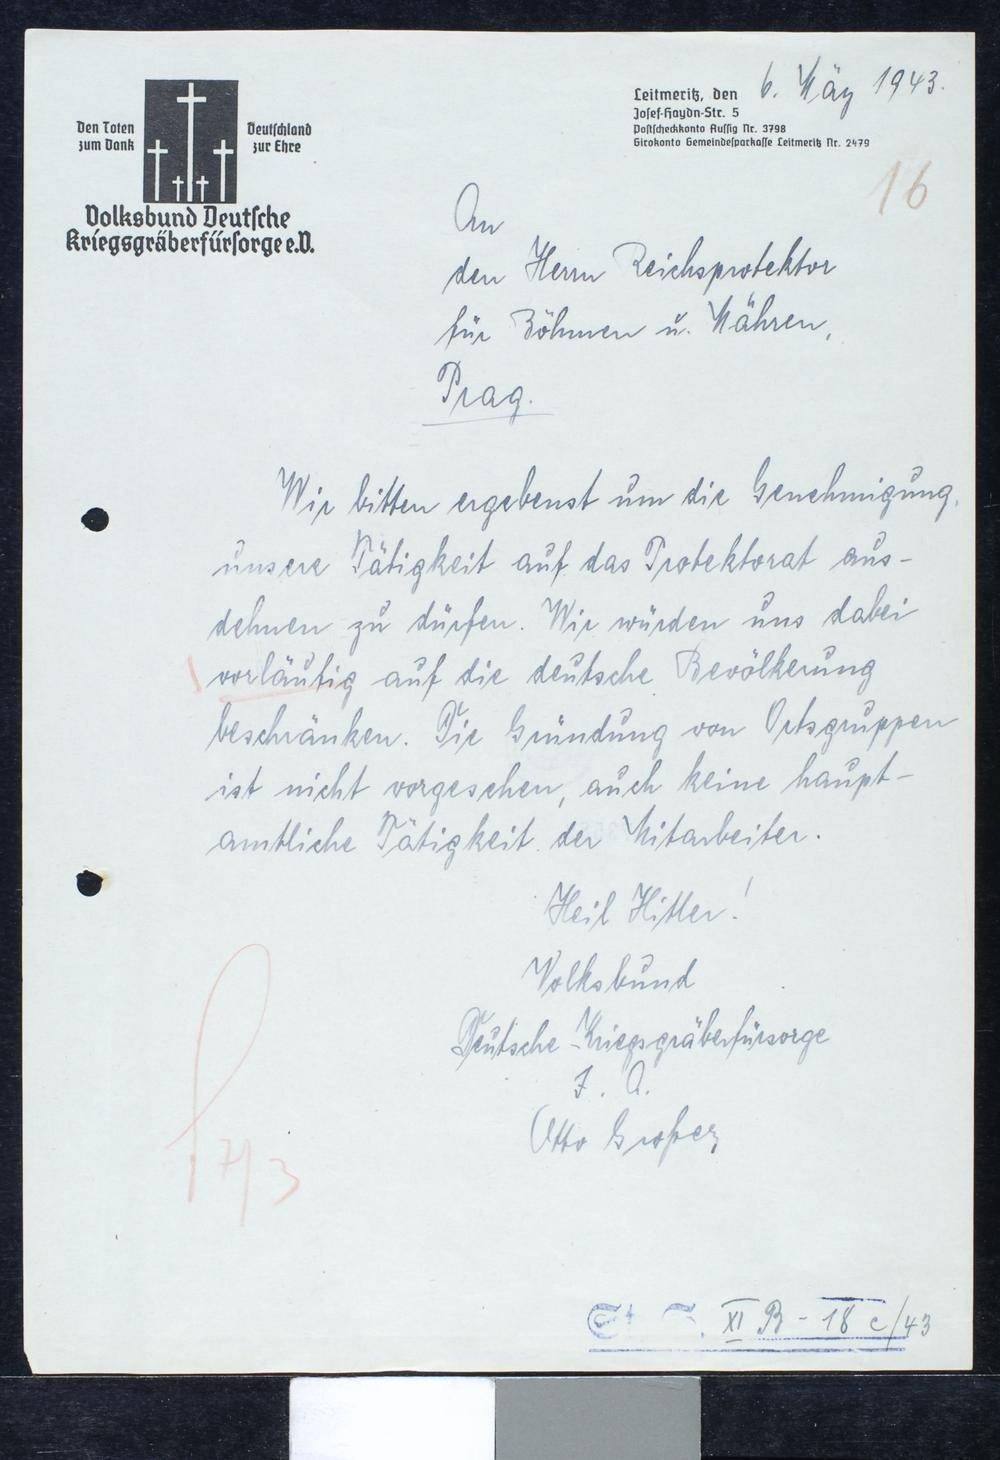 Den Toten
zum Dank
Deutschland
zur Ehre
Volksbund Deutsche
Kriegsgräberfürsorge e.V.
Leitmeritz, den 6. März 1943.
Josef-Haydn-Str. 5
Postscheckkonto Aussig Nr. 3798
Girokonto Gemeindesparkasse Leitmeritz Nr. 2479
16
An
den Herrn Reichsprotektor
für Böhmen u. Mähren,
Prag.
Wir bitten ergebenst um die Genehmigung,
unsere Tätigkeit auf das Protektorat aus-
dehnen zu dürfen. Wir würden uns dabei
vorläufig auf die deutsche Bevölkerung
beschränken. Die Gründung von Ortsgruppen
ist nicht vorgesehen, auch keine haupt-
amtliche Tätigkeit der Mitarbeiter.
Heil Hitler!
Volksbund
Deutsche Kriegsgräberfürsorge
I. A.
Otto
St. S. XI B - 18 c/43